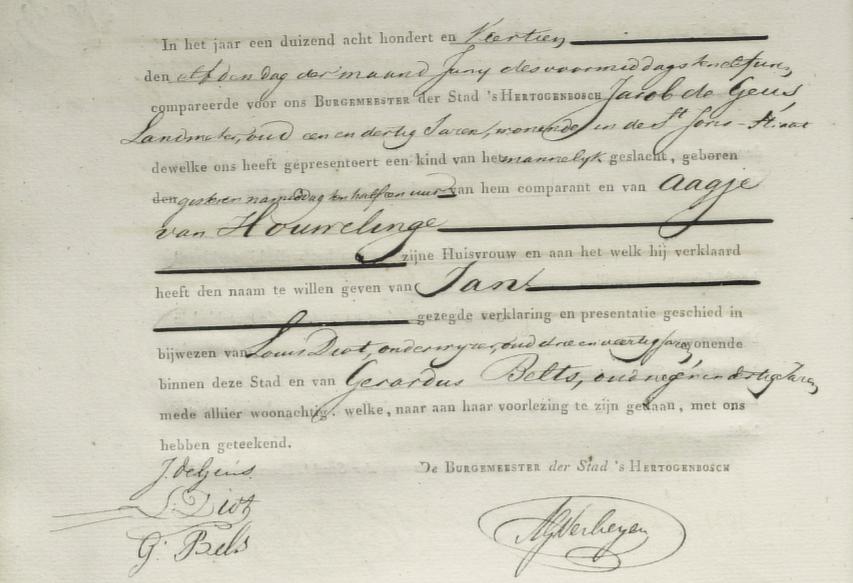 In het jaar een duizend acht hondert en Veertien
den elfden dag der maand Juny des voormiddags ten elf uren
compareerde voor ons BURGEMEESTER der Stad 's HERTOGENBOSCH Jacob de Geus
Landmeter, oud een en dertig Jaren, wonende in de St Joris-straat
dewelke ons heeft gepresenteert een kind van het mannelyk geslacht, geboren
den gisteren namiddag ten half een uur van hem comparant en van Aagje
van Houwelinge
zijne Huisvrouw en aan het welk hij verklaard
heeft den naam te willen geven van Jan
gezegde verklaring en presentatie geschied in
bijwezen van Louis Diot, onderwyzer, oud drie en veertig Jaren wonende
binnen deze Stad en van Gerardus Belts, oud neg'n en dertig Jaren
mede alhier woonachtig. welke, naar aan haar voorlezing te zijn gedaan, met ons
hebben geteekend.
De BURGEMEESTER der Stad 's HERTOGENBOSCH
J. de Geus
L. Diot
G. Bels
AGVerheyen